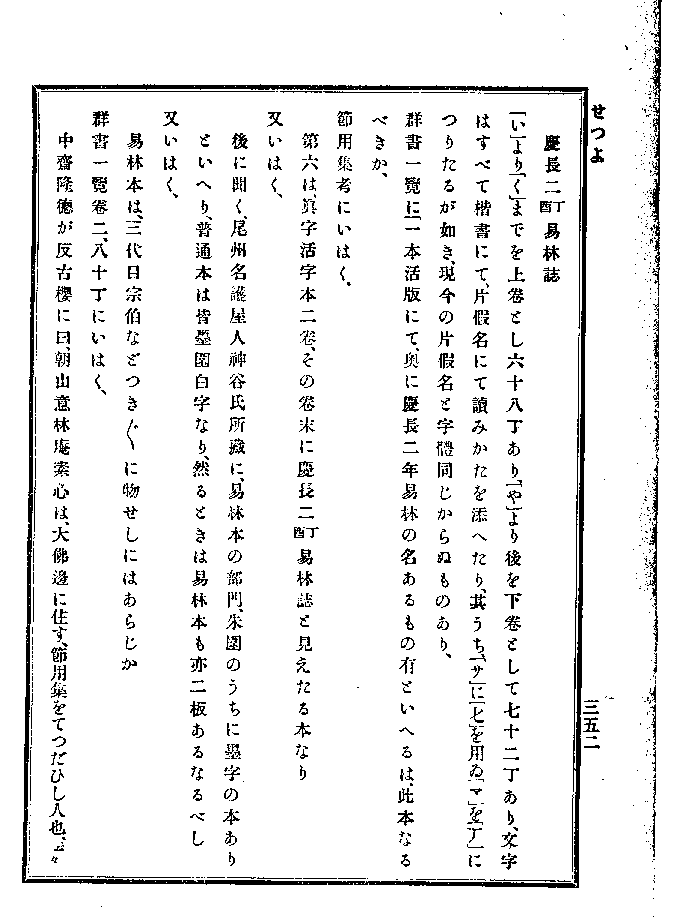 せつよ
慶長二丁酉易林誌
「い」より「く」までを上卷とし六十八丁あり、「や」より後を下卷として七十二丁あり、文字
はすべて楷書にて、片假名にて讀みかたを添へたり、其うち、「サ」に「七」を用ゐ「マ」を「丁」に
つりたるが如き、現今の片假名と字體同じからぬものあり、
群書一覽に「一本活版にて、奥に慶長二年易林の名あるもの有といへるは、此本なる
べきか、
節用集考にいはく、
第六は、眞字活字本二卷、その卷末に慶長二丁酉易林誌と見えたる本なり
又いはく、
後に聞く、尾州名護屋人神谷氏所藏に、易林本の部門、朱圍のうちに墨字の本あり
といへり、普通本は皆墨圍白字なり、然るときは易林本も亦二板あるなるべし
又いはく、
易林本は、三代目宗伯などつき〲に物せしにはあらじか
群書一覽卷二、八十丁にいはく、
中齋隆德が反古櫻に曰、朝山意林庵素心は、大佛邊に住す、節用集をてつだひし人也、云々
三五二